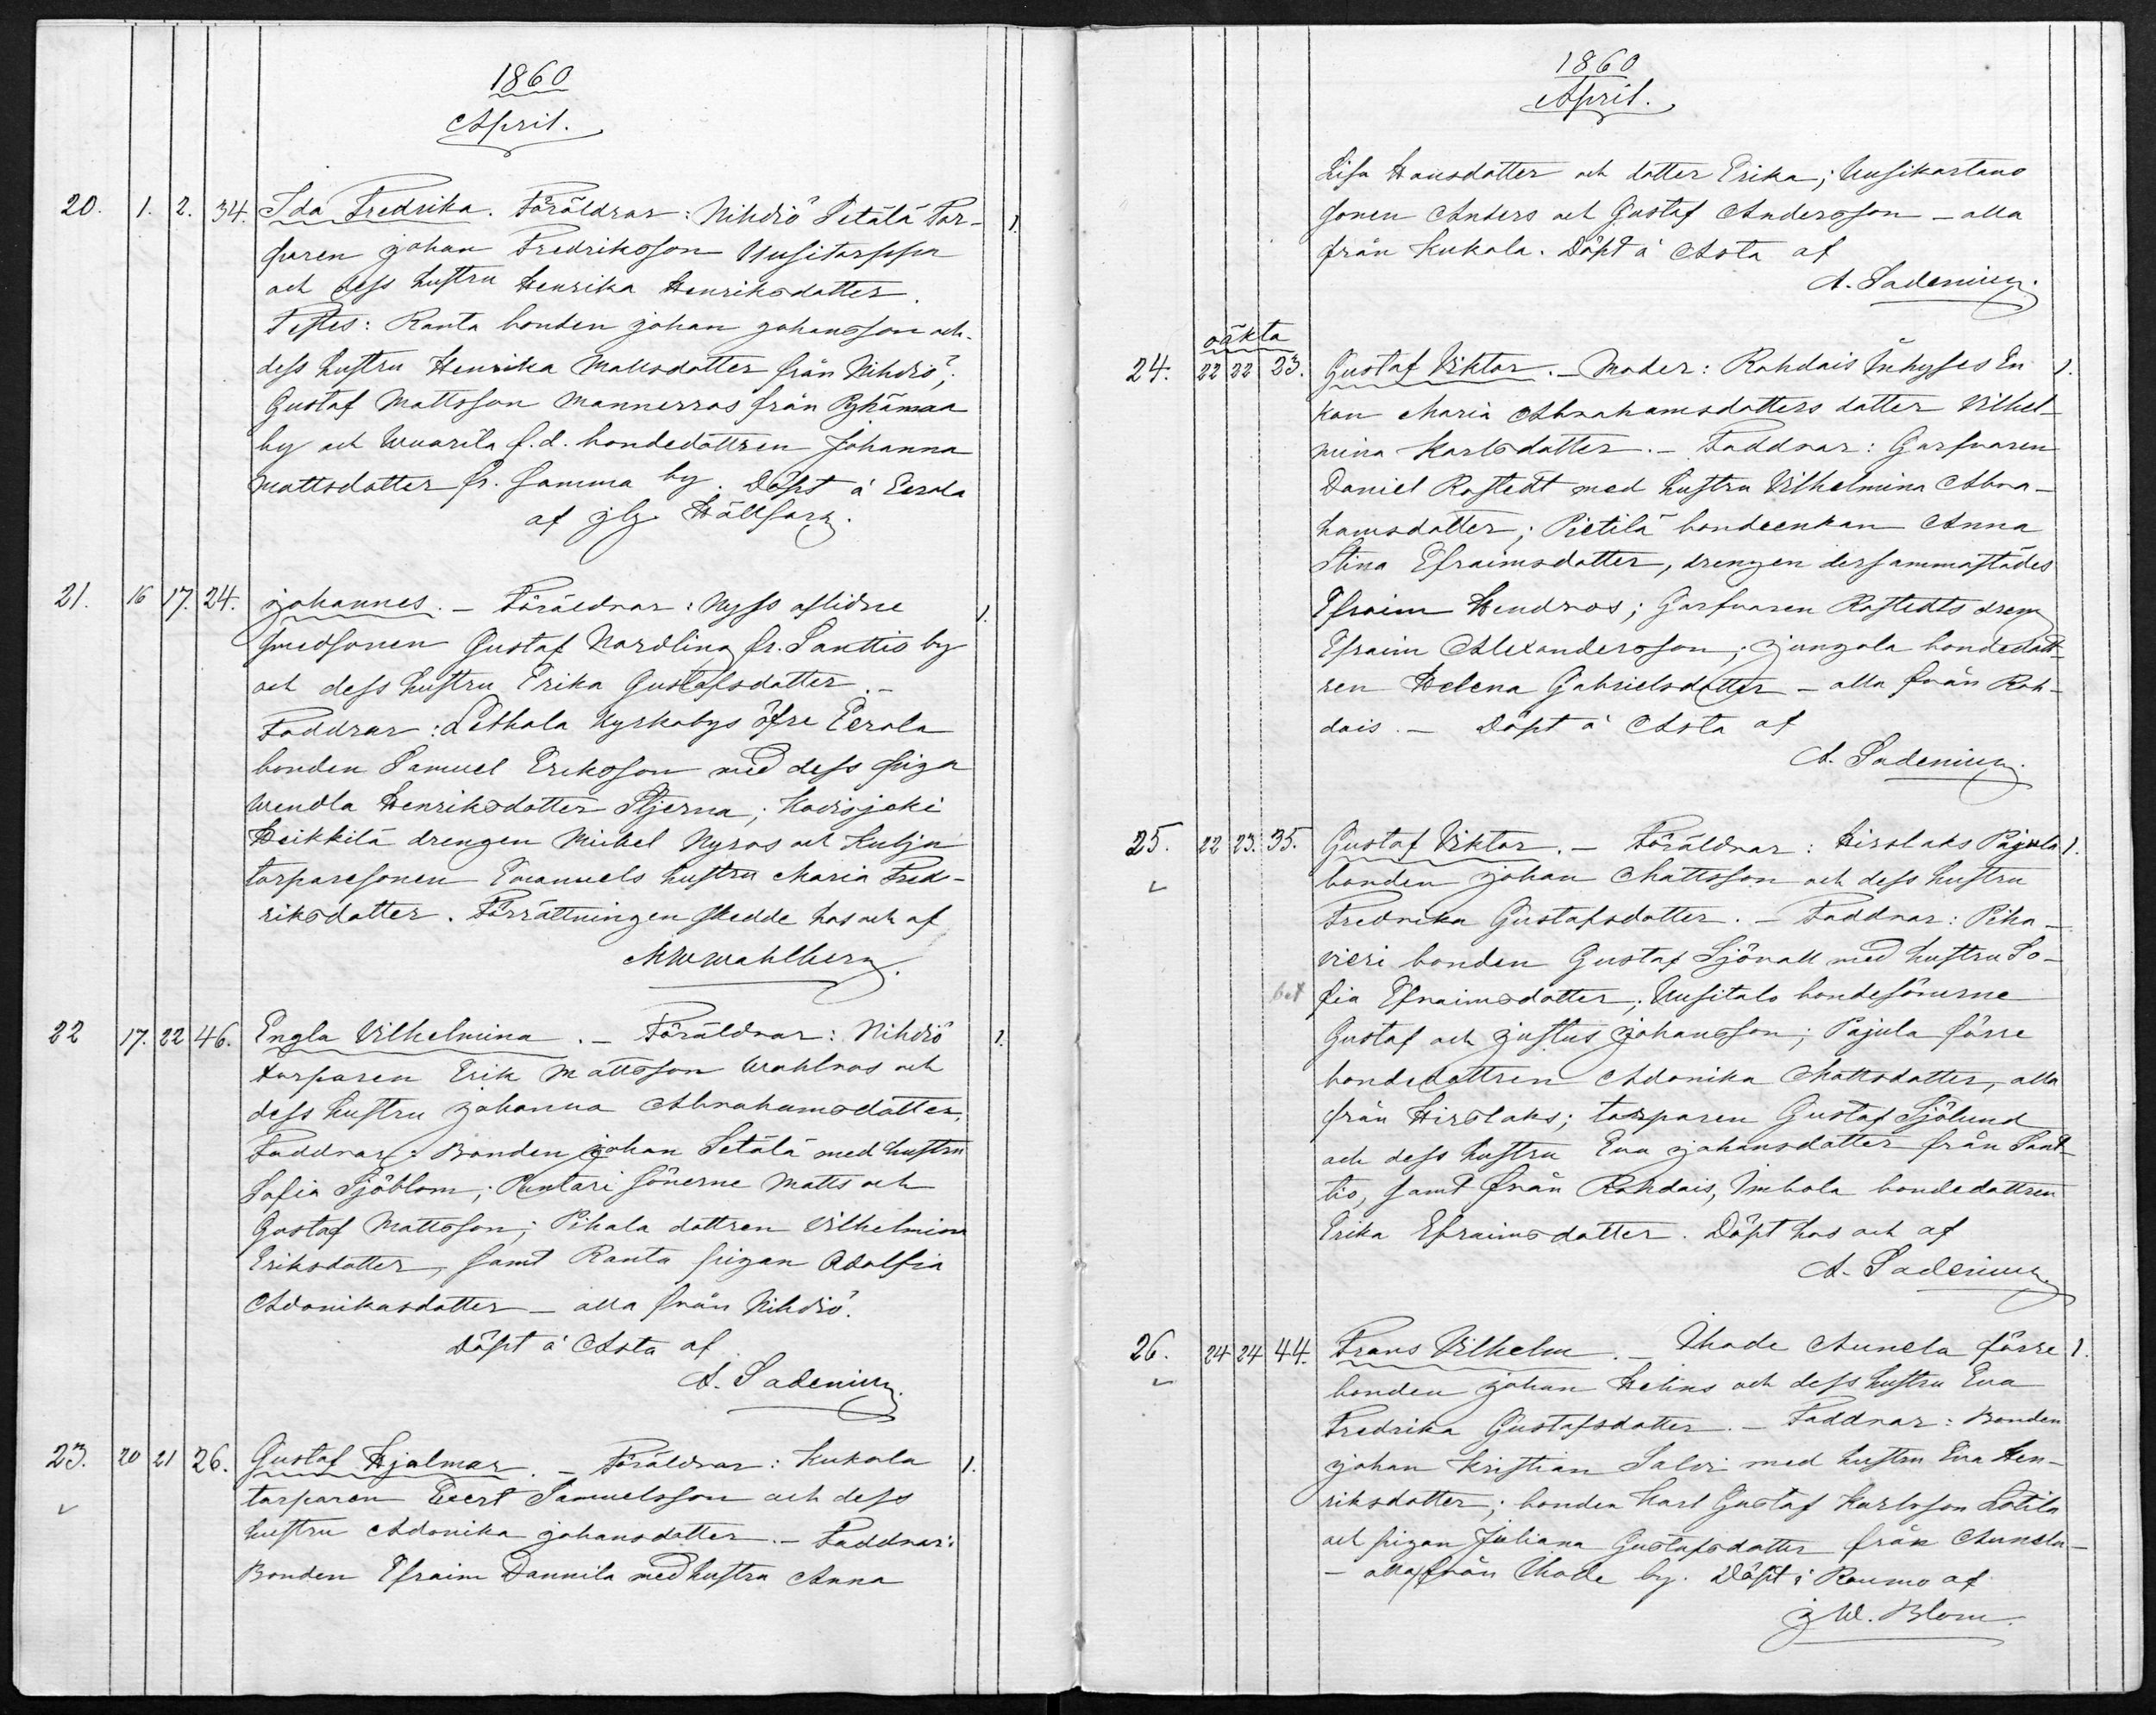 1860
April.
20. 1. 2. 34. Ida Fredrika. Föräldrar: Nihdiö Setälä Tor-
paren Johan Fredriksson Uusitorppa
och dess hustru Henrika Henriksdotter.
Testes: Ranta bonden Johan Johansson och
dess hustru Henrika Mattsdotter från Nihdiö;
Gustaf Mattsson Mannerros från Pyhämaa
by och f.d. bondedottren Johanna
Mattsdotter fr. samma by. Döpt å Eerola
af Hällfors.
21. 16 17. 24. Johannes. – Föräldrar: Nyss aflidne
smedsonen Gustaf Nordling fr. Santtio by
och dess hustru Erika Gustafsdotter. –
Faddrar: Lethala Kyrkobys öfre Eerola
bonden Samuel Eriksson med dess piga
Wendla Henriksdotter Stjerna; Kodisjoki
Heikkilä drengen Mickel Nyros och
torparesonen Emanuels hustru Maria Fred-
riksdotter. Förrättningen skedde hos och af
M W Wahlberg.
22 17. 22 46. Engla Vilhelmina. – Föräldrar: Nihdiö 1.
torparen Erik Mattsson Wahlros och
dess hustru Johanna Abrahamsdotter.
Faddrar: Bonden Johan Setälä med hustru
Sofia Sjöblom; Puntari sönerne Matts och
Gustaf Mattsson; Pihala dottren Vilhelmina
Eriksdotter, samt Ranta pigan Adolfia
Adonikasdotter – alla från Nihdiö.
Döpt å Asta af
A. Sadenius.
23. 20 21 26. Gustaf Hjalmar. – Föräldrar: Kukola 1.
torparen Evert Samuelsson och dess
hustru Adonika Johansdotter. – Faddrar:
Bonden Efraim Dannila med hustru Anna
1860
April.
Lisa Hansdotter och dotter Erika; Uusikartano
sonen Anders och Gustaf Andersson – alla
från Kukola. Döpt å Asta af
A. Sadenius.
oäkta
24. 22 22 23. Gustaf Viktor. – Moder: Rohdais Inhyses En 1.
kan Maria Abrahamsdotters dotter Vilhel-
mina Karlsdotter. – Faddrar: Garfvaren
Daniel Rostedt med hustru Vilhelmina Abra-
hamsdotter; Pietilä bondeenkan Anna
Stina Efraimsdotter, drengen dersammastädes
Efraim Hendros; Garfvaren Rostedts dreng
Efraim Alexandersson; Jungola bondedott-
ren Helena Gabrielsdotter – alla från Roh-
dais. – Döpt å Asta af
A. Sadenius.
25. 22 23. 35. Gustaf Viktor. – Föräldrar: Hirslaks Pajula 1.
bonden Johan Mattsson och dess hustru
Fredrika Gustafsdotter. – Faddrar: Piha-
vieri bonden Gustaf Sjövall med hustru So-
fia Efraimsdotter; Uusitalo bondesönerne
Gustaf och Justus Johansson; Pajula förre
bondedottren Adonika Mattsdotter, alla
från Hirslaks; torparen Gustaf Sjölund
och dess hustru Eva Johansdotter från Sant-
tio, samt från Rohdais, Imhola bondedottren
Erika Efraimsdotter. Döpt hos och af
A. Sadenius.
26. 24 24 44. Frans Vilhelm. – Ihode Aunela förre 1.
bonden Johan Helins och dess hustru Eva
Fredrika Gustafsdotter. – Faddrar: Bonden
Johan Kristian Salvi med hustru Eva Hen-
riksdotter; bonden Karl Gustaf Karlsson Lotila
och pigan Juliana Gustafsdotter från Aunela
– alla från Ihode by. Döpt i Raumo af
J W. Blom.